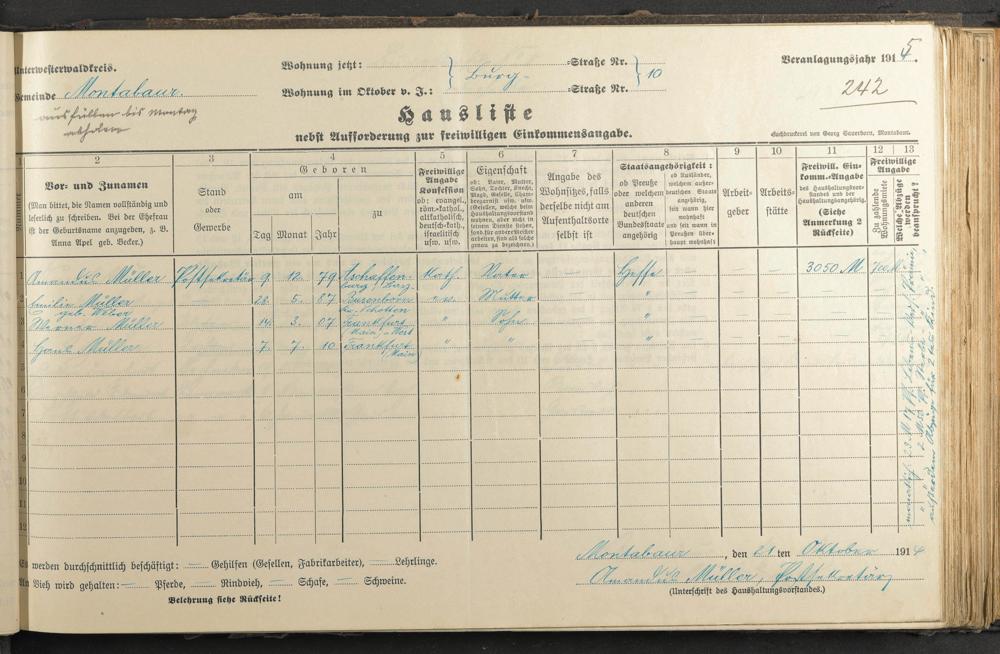 Unterwesterwaldkreis.
Wohnung jetzt: Burg- =Straße Nr. 10
Veranlagungsjahr 1915.
Gemeinde Montabaur.
Wohnung im Oktober v. J.: =Straße Nr.
242
ausfüllen bis Montag
abholen
Hausliste
nebst Aufforderung zur freiwilligen Einkommensangabe.
Sachdruckerei von Georg Sauerborn, Montabaur.
1 2 3 4 5 6 7 8 9 10 11 12 13
Nummer
Vor- und Zunamen
(Man bittet, die Namen vollständig und
leserlich zu schreiben. Bei der Ehefrau
ist der Geburtsname anzugeben, z. B.
Anna Apel geb. Becker.)
Stand
oder
Gewerbe
Geboren
am
zu
Tag Monat Jahr
Freiwillige
Angabe
Konfession
ob: evangel.,
röm.-kathol.,
altkatholisch,
deutsch-kath.,
israelitisch
usw. usw.
Eigenschaft
ob: Vater, Mutter,
Sohn, Tochter, Knecht,
Magd, Geselle, Chambre-
garnist usw. usw.
(Gesellen, welche beim
Haushaltungsvorstand
wohnen, aber nicht in
seinem Dienste stehen,
sind für anderweiter
arbeiten, sind als solche
genau zu bezeichnen.)
Angabe des
Wohnsitzes, falls
derselbe nicht am
Aufenthaltsorte
selbst ist
Staatsangehörigkeit:
ob Preuße
oder welchem
anderen
deutschen
Bundesstaate
angehörig
ob Ausländer,
welchem außer-
deutschen Staate
angehörig,
seit wann hier
wohnhaft
und seit wann in
Preußen über-
haupt wohnhaft
Arbeit-
geber
Arbeits-
stätte
Freiwill. Ein-
komm.-Angabe
des Haushaltungsvor-
standes und der
Haushaltungsangehörig.
(Siehe
Anmerkung 2
Rückseite)
Freiwillige
Angabe
Zu zahlende
Wohnungsmiete
Welche Abzüge
werden
beansprucht?
1 Amandus Müller Postsekretär 9. 12. 79 Aschaffen-
burg kath. Vater — Hesse — — 3050 M. 700 M
2 Emilie Müller
geb. Weber 5. 87 Busenborn
Schotten ev. Mutter "
3 Werner Müller 14. 3. 07 Frankfurt
Main " Sohn "
4 Hans Müller 7. 7. 10 Frankfurt
Main " " "
5
6
7
8
9
10
11
12
Es werden durchschnittlich beschäftigt: — Gehilfen (Gesellen, Fabrikarbeiter), — Lehrlinge.
An Vieh wird gehalten: — Pferde, — Rindvieh, — Schafe, — Schweine.
Belehrung siehe Rückseite!
Montabaur, den 21 ten Oktober 1914
Amandus Müller, Postsekretär
(Unterschrift des Haushaltungsvorstandes.)